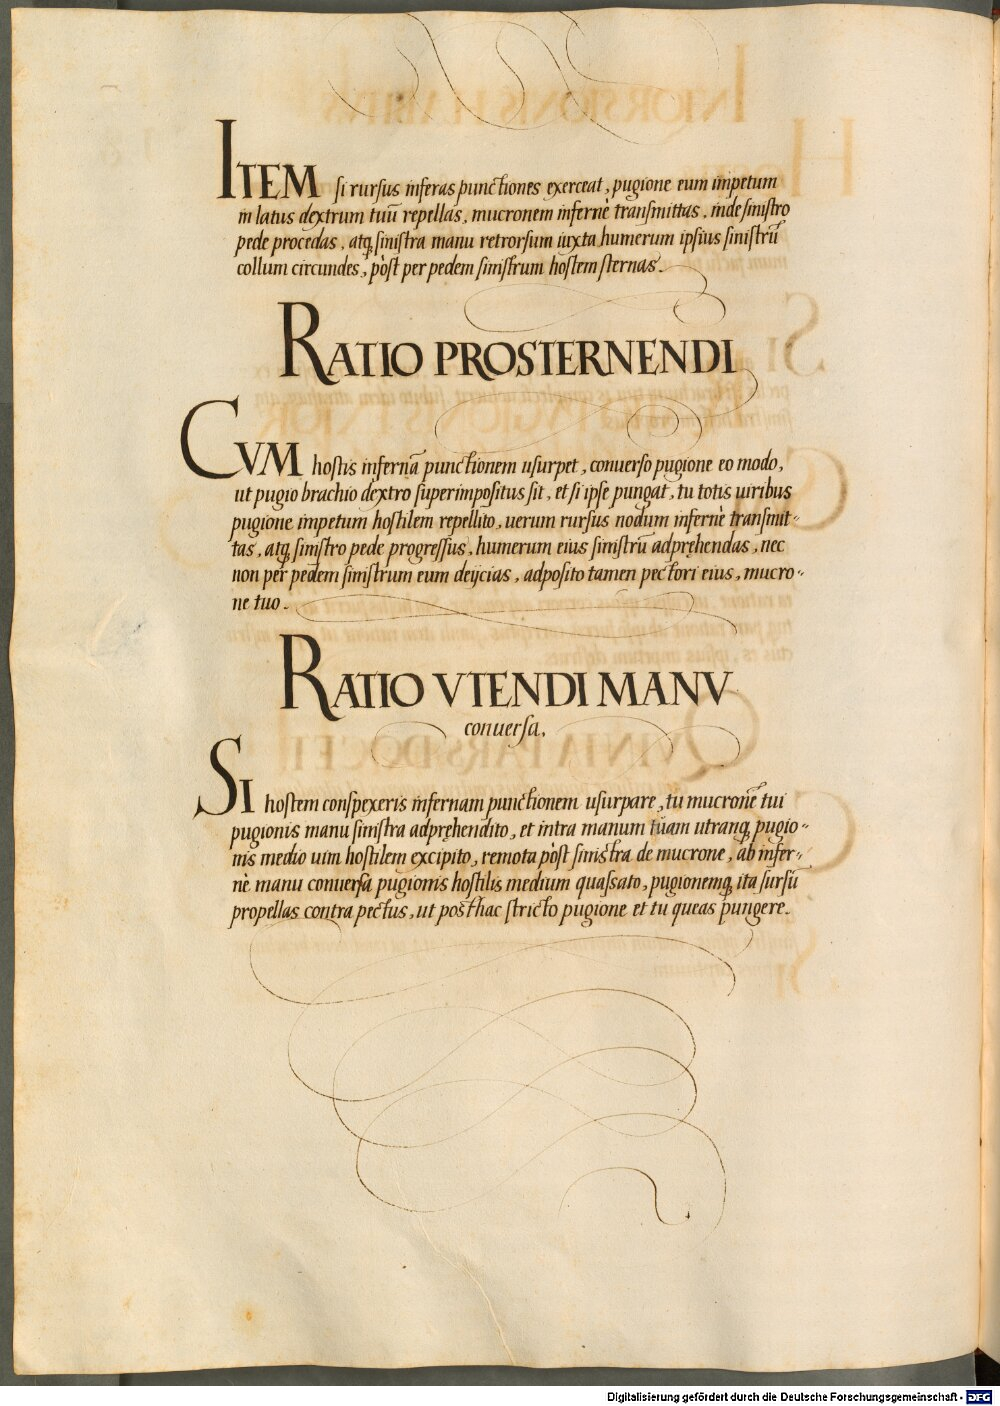 ITEM si rursus inferas punctiones exerceat, pugione eum impetum
in latus dextrum tuū repellas, mucronem infernè transmittas, inde sinistro
pede procedas, atq; sinistra manu retrorsum iuxta humerum ipsius sinistrū
collum circundes, pòst per pedem sinistrum hostem sternas.
RATIO PROSTERNENDI
CVM hostis infernā punctionem usurpet, conuerso pugione eo modo,
ut pugio brachio dextro superimpositus sit, et si ipse pungat, tu totis uiribus
pugione impetum hostilem repellito, uerum rursus nodum infernè transmit-
tas, atq; sinistro pede progressus, humerum eius sinistrū adpręhendas, nec
non per pedem sinistrum eum deijcias, adposito tamen pectori eius, mucro-
ne tuo.
RATIO VTENDI MANV
conuersa.
SI hostem conspexeris infernam punctionem usurpare, tu mucronē tui
pugionis manu sinistra adpręhendito, et intra manum tuam utranq; pugio-
nis medio uim hostilem excipito, remota pòst sinistra de mucrone, ab infer-
nè manu conuersa pugionis hostilis medium quassato, pugionemq; ita sursū
propellas contra pectus, ut posthac stricto pugione et tu queas pungere.
Digitalisierung gefördert durch die Deutsche Forschungsgemeinschaft - DFG